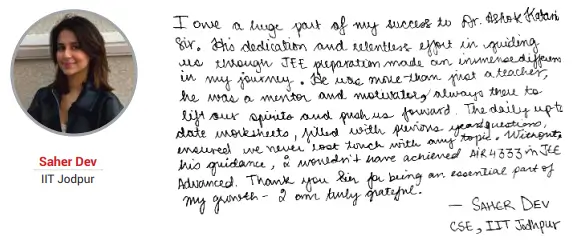 Saher Dev
IIT Jodpur
I owe a huge part of my success to Dr. Ashok Katari
Sir. His dedication and relentless effort in guiding
us through JEE preparation made an immense differen
in my journey. He was more than just a teacher,
he was a mentor and motivator, always there to
lift our spirits and push us forward. The daily up to
date worksheets, filled with previous year questions,
ensured we never lost touch with any topic. Without
his guidance, I wouldn't have achieved AIR 4333 in JEE
Advanced. Thank you Sir for being an essential part of
my growth - I am truly grateful.
— SAHER DEV
CSE, IIT Jodhpur